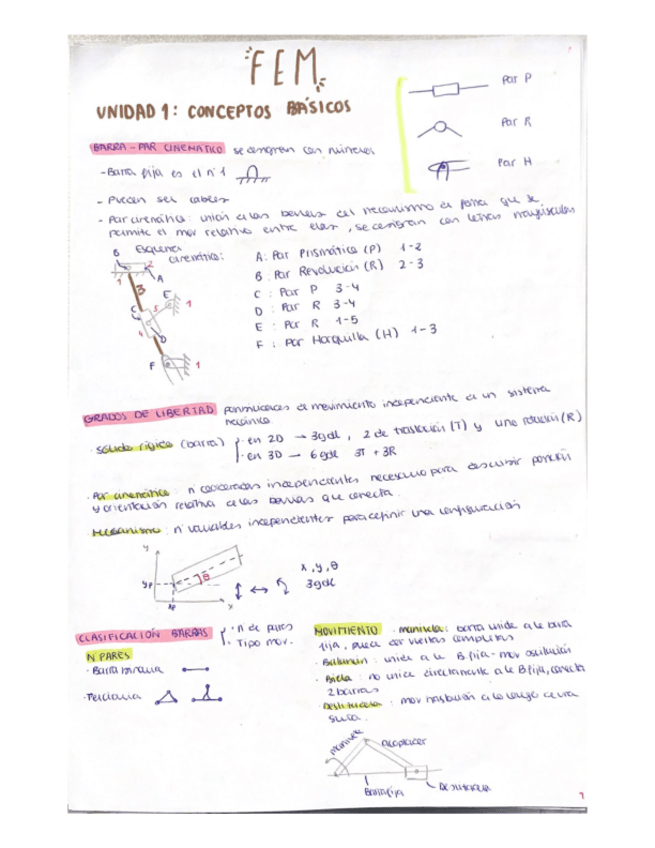 FEM
UNIDAD 1: CONCEPTOS BÁSICOS
Par P
Par R
Par H
BARRA - PAR CINEMÁTICO se designan con números
- Barra fija es el nº 1
- Pueden ser cables
- Par cinemático: unión de las barras del mecanismo de forma que se
permite el mov relativo entre ellas, se designan con letras mayúsculas
Esquema
cinemático:
B
2
1
A
3
E
1
C
5
4
D
F
1
A: Par Prismático (P) 1-2
B: Par Revolución (R) 2-3
C: Par P 3-4
D: Par R 3-4
E: Par R 1-5
F: Par Horquilla (H) 1-3
GRADOS DE LIBERTAD el movimiento independiente de un sistema
mecánico.
· Sólido rígido (barra) · en 2D → 3gdl, 2 de traslación (T) y uno rotación (R)
· en 3D → 6gdl 3T + 3R
· Par cinemático: nº coordenadas independientes necesario para describir posición
y orientación relativa de las barras que conecta.
Mecanismo: nº variables independientes para definir una configuración
y
yp
θ
xp
x
x, y, θ
3gdl
CLASIFICACIÓN BARRAS · n de pares
· Tipo mov.
Nº PARES
· Barra binaria
· Terciaria
MOVIMIENTO · manivela: barra unida a la barra
fija, puede dar vueltas completas
· Balancín: unida a la B fija - mov oscilación
· Biela: no unida directamente a la B fija, conecta
2 barras
· Deslizadera: mov traslación a lo largo de una
guía.
manivela
Acoplador
Barra fija
Deslizadera
1